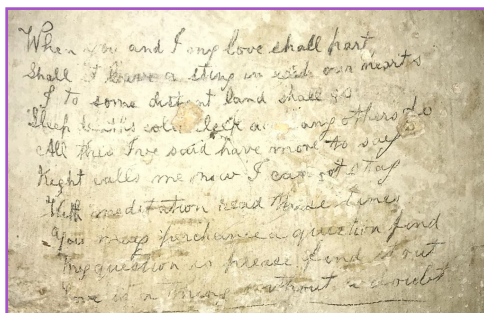 When you and I my love shall part
Shall it leave a sting in each our hearts
I to some distant land shall go
cold
All this I've said have more to say
Night calls me now I cannot stay
With meditation read these lines
You may perchance a question find
My question is please find it out
Love is a thing without a doubt